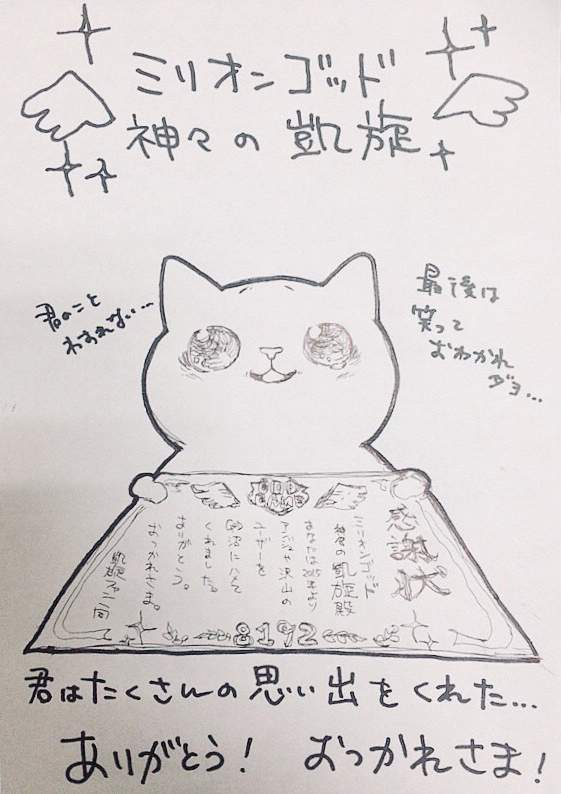 ミリオンゴッド
神々の凱旋
君のこと
わすれない…
最後は
笑って
おわかれ
ダヨ…
感謝状
ミリオンゴッド
神々の凱旋殿
あなたは
アンジャや沢山の
ユーザーを
沼にハメて
くれました。
ありがとう。
おつかれさま。
凱旋ファン一同
8192
君はたくさんの思い出をくれた…
ありがとう! おつかれさま!